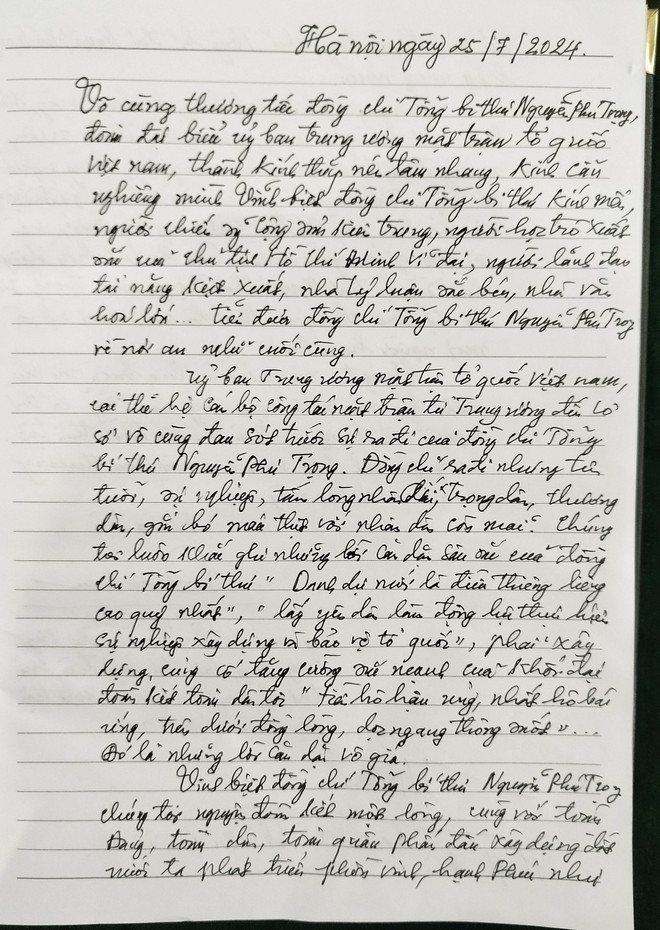 Hà nội ngày 25/7/2024.
Vô cùng thương tiếc đồng chí Tổng bí thư Nguyễn Phú Trọng,
đoàn đại biểu uỷ ban trung ương mặt trận tổ quốc
Việt nam, thành kính thắp nén tâm nhang, kính cẩn
nghiêng mình Vĩnh biệt đồng chí Tổng bí thư kính mến,
người chiến sỹ cộng sản kiên trung, người học trò xuất
sắc của chủ tịch Hồ Chí Minh vĩ đại, người lãnh đạo
tài năng kiệt xuất, nhà lý luận sắc bén, nhà văn
hoá lớn... tiễn đưa đồng chí Tổng bí thư Nguyễn Phú Trọng
về nơi an nghỉ cuối cùng.
Uỷ ban Trung ương mặt trận tổ quốc Việt nam,
các thế hệ cán bộ công tác mặt trận từ Trung ương đến cơ
sở vô cùng đau xót trước sự ra đi của đồng chí Tổng
bí thư Nguyễn Phú Trọng. Đồng chí ra đi nhưng tên
tuổi, sự nghiệp, tấm lòng nhân ái, trọng dân, thương
dân, gắn bó máu thịt với nhân dân còn mãi. Chúng
tôi luôn khắc ghi những lời căn dặn sâu sắc của đồng
chí Tổng bí thư " Danh dự mới là điều thiêng liêng
cao quý nhất", " lấy yên dân làm động lực thực hiện
sự nghiệp xây dựng và bảo vệ tổ quốc", phải xây
dựng, củng cố tăng cường sức mạnh của khối đại
đoàn kết toàn dân tộc " tiền hô hậu ủng, nhất hô bá
ứng, trên dưới đồng lòng, dọc ngang thông suốt"...
Đó là những lời căn dặn vô giá.
Vĩnh biệt đồng chí Tổng bí thư Nguyễn Phú Trọng
chúng tôi nguyện đoàn kết một lòng, cùng với toàn
Đảng, toàn dân, toàn quân phấn đấu xây dựng đất
nước ta phát triển phồn vinh, hạnh phúc như